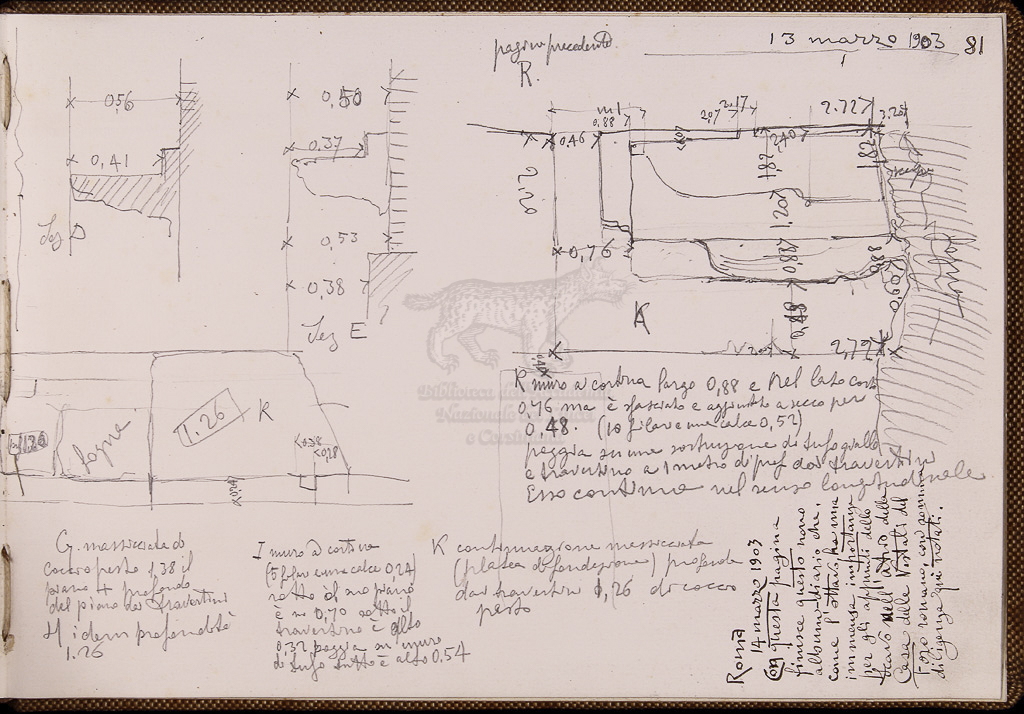 pagina precedente
13 marzo 1903 81
R.
0,56
0,41
Sez D
0,50
0,37
0,53
0,38
Sez E
m 1
0.88
0,46
2,17
2,07
2.727
2,20
1,82
2,40
1.82
1.20
0,76
0,88
0,88
0,48
0,60
K
2,79
1.26 K
fogna
1.20
K muro a cortina largo 0,88 e nel lato corto
0,76 ma è sfasciato e aggiunto a secco per
0.48. (10 filari e une calce 0,52)
poggia su una costruzione di tufo giallo
e travertino a 1 metro di prof dai travertini
Esso continua nel senso longitudinale
G. massicciata di
coccio pesto 1,38 il
piano 4 profondo
del piano dei travertini
H idem profondità
1.26
I muro a cortina
(5 filari e une calce 0,24)
sotto il suo piano
è m 0,70 sotto il
travertino è alto
0,32 poggia su muro
di tufo tutto è alto 0.54
K continuazione massicciata
(platea di fondazione) profonda
dai travertini 1,26 di coccio
pesto
Roma
14 marzo 1903
Con questa pagina
finisce questo nono
album-diario che,
come l'ottavo, ha una
immensa importanza
per gli appunti dello
scavo nell'atrio della
Casa delle Vestali del
Foro romano, con somma
diligenza qui notati.